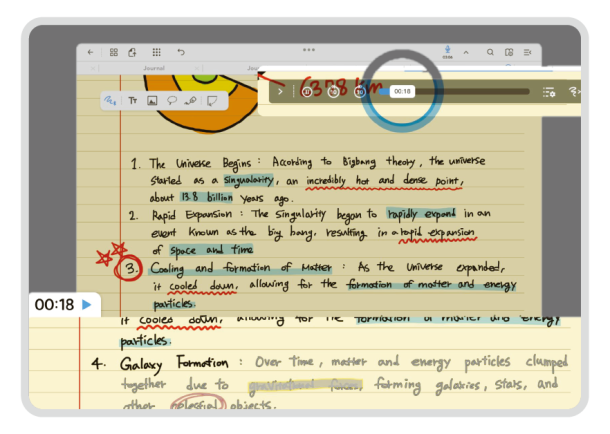 Journal
Jour
6378 km
00:18
1. The Universe Begins : According to Bigbang theory, the universe
started as a singularity, an incredibly hot and dense point,
about 13.8 billion years ago.
2. Rapid Expansion : The singularity began to rapidly expand in an
event known as the big bang, resulting in a rapid expansion
of space and time
3. Cooling and formation of Matter : As the universe expanded,
it cooled down, allowing for the formation of matter and energy
particles.
00:18
it cooled down, allowing for the formation of matter and energy
particles.
4. Galaxy Formation : Over time, matter and energy particles clumped
together due to gravitational forces, forming galaxies, stars, and
other celestial objects.